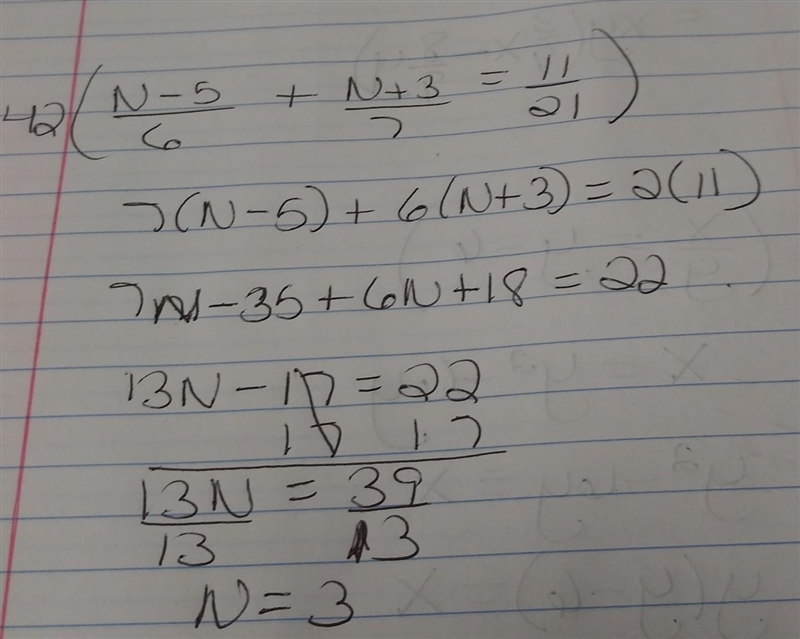 42(N-5/6 + N+3/7 = 11/21)
7(N-5) + 6(N+3) = 2(11)
7N-35+6N+18 = 22
13N-17 = 22
17 17
13N/13 = 39/13
N = 3